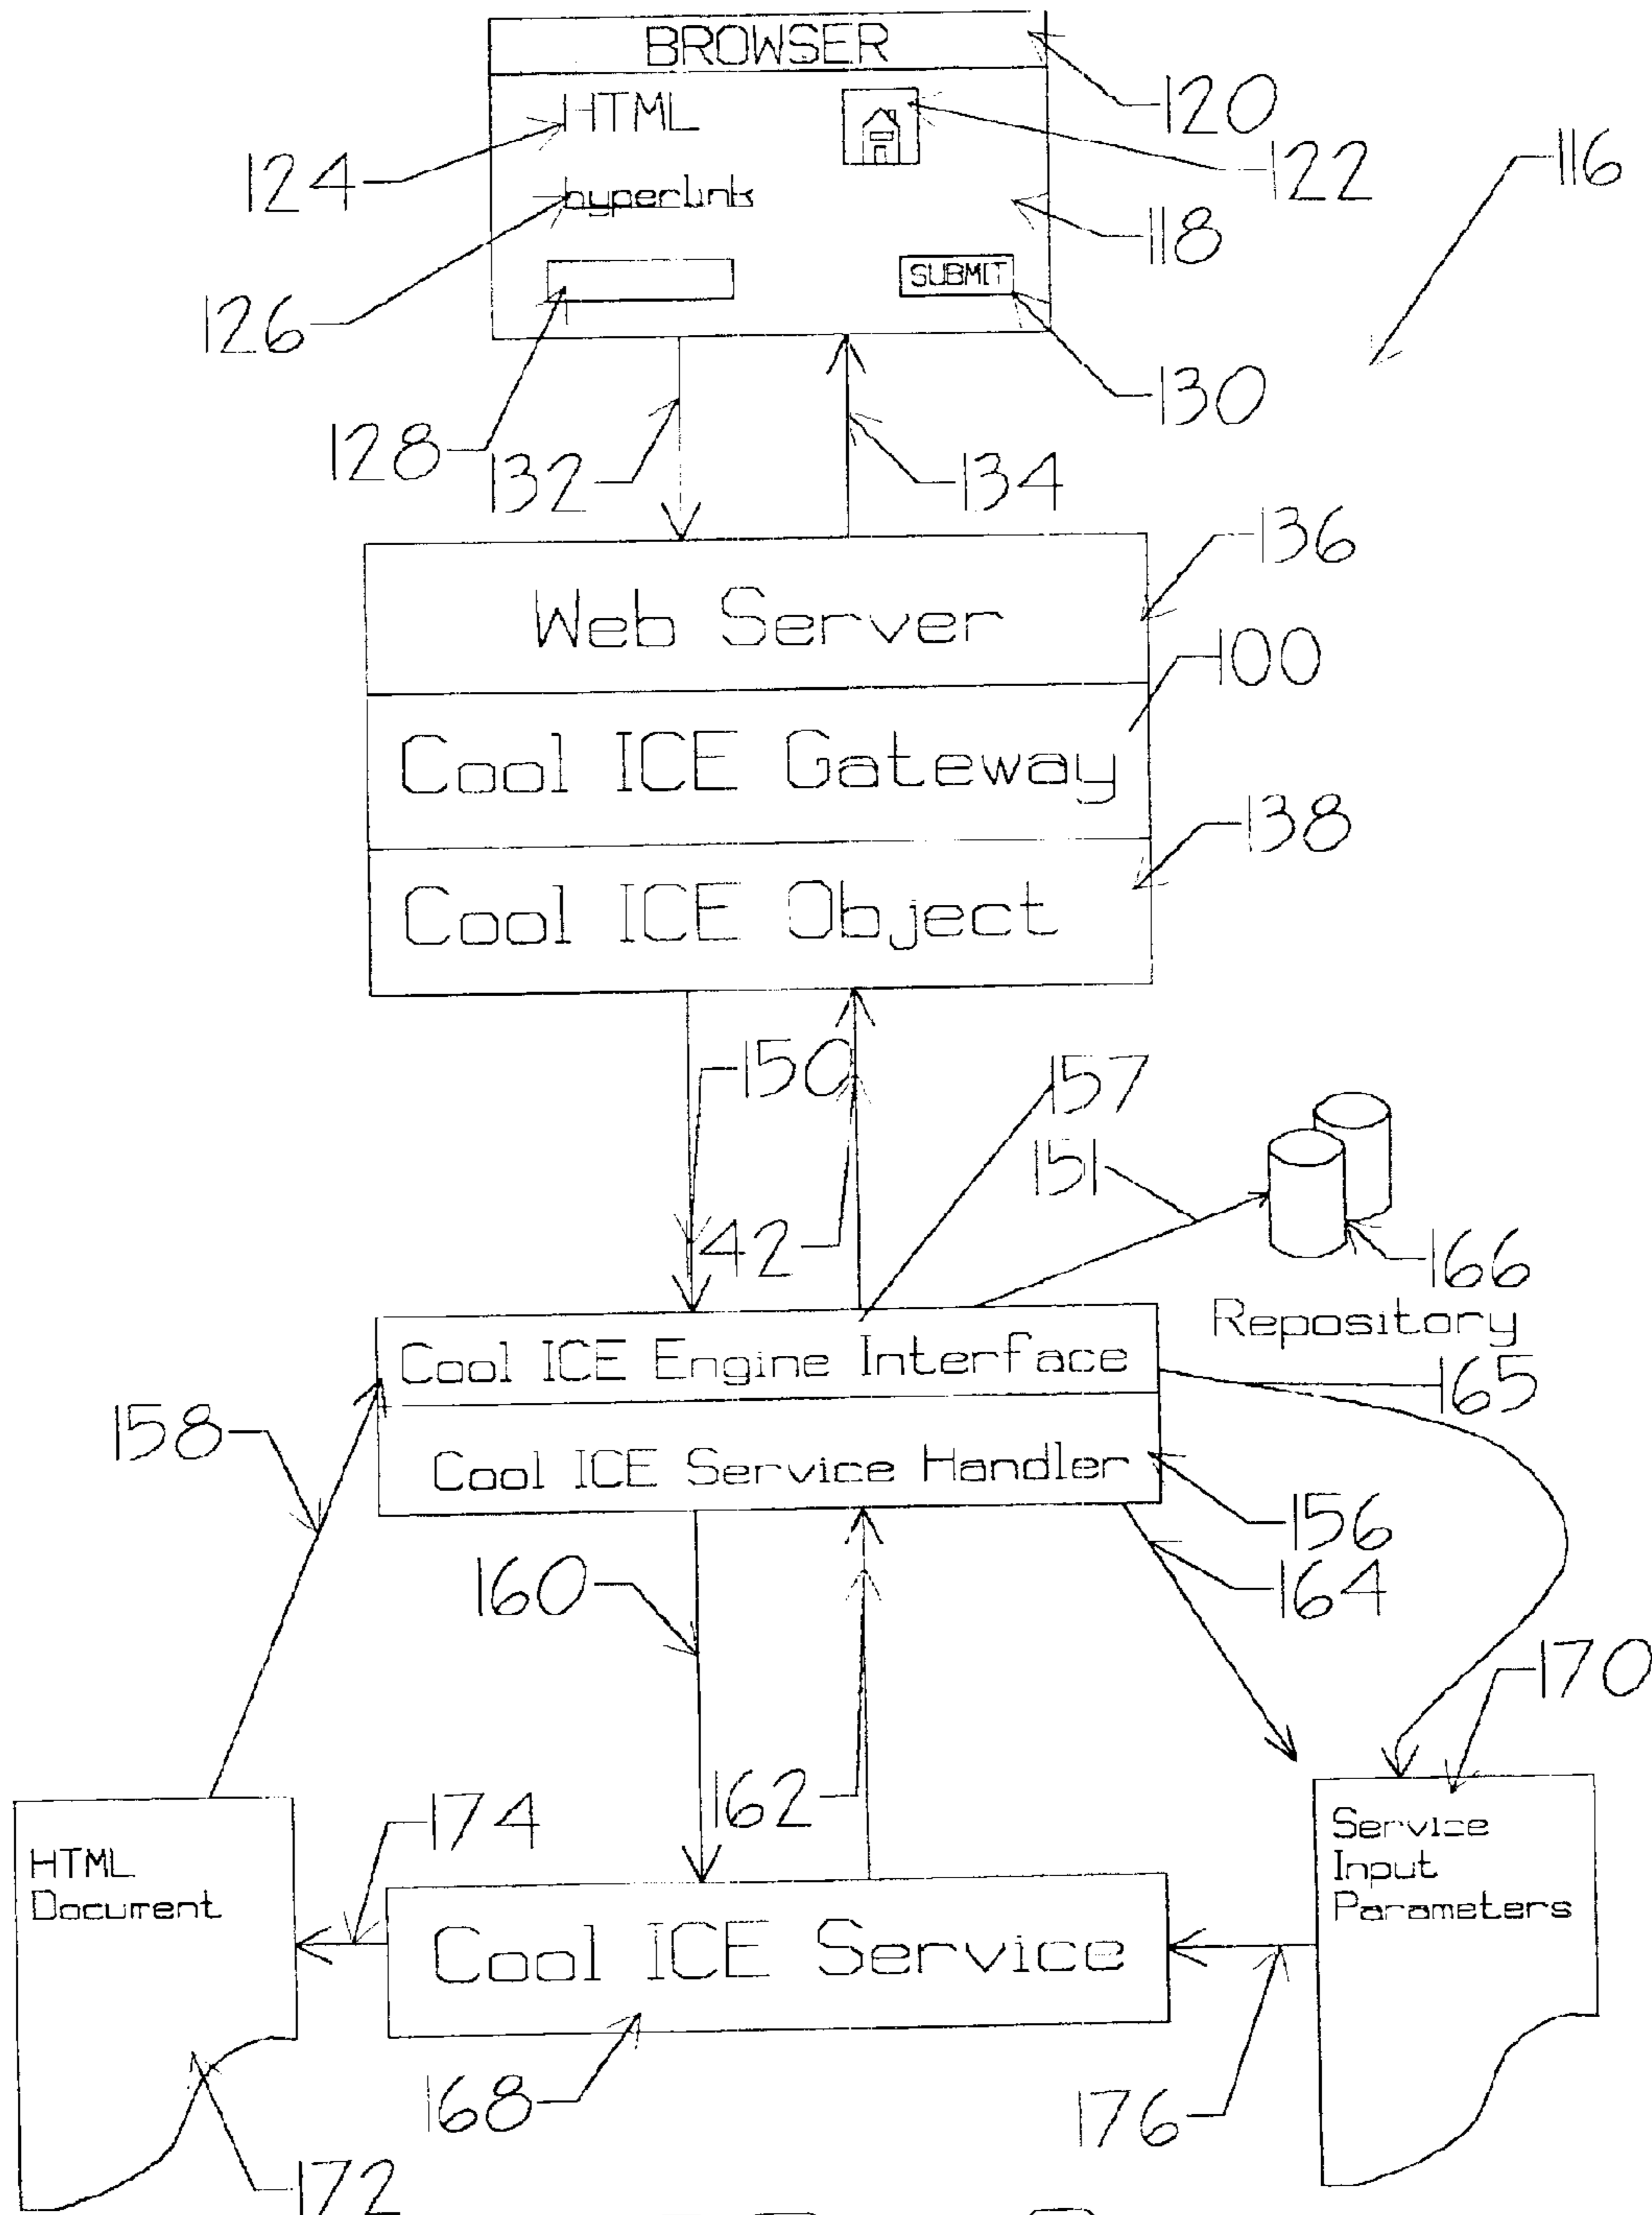 BROWSER
120
HTML
124
122
116
hyperlink
118
126
SUBMIT
130
128
132
134
136
Web Server
100
Cool ICE Gateway
138
Cool ICE Object
150
157
151
42
166
Repository
Cool ICE Engine Interface
165
158
Cool ICE Service Handler
156
160
164
170
162
174
HTML
Document
Service
Input
Parameters
Cool ICE Service
168
176
172